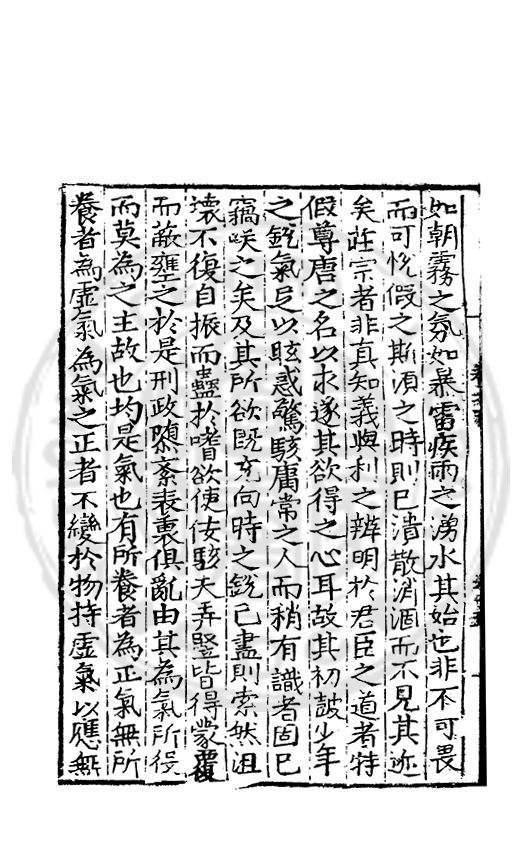 如朝霧之氛如暴雷疾雨之湧水其始也非不可畏
而可悅假之斯須之時則已潰散消涸而不見其迹
矣莊宗者非真知義與利之辨明於君臣之道者特
假尊唐之名以求遂其欲得之心耳故其初鼓少年
之銳氣足以眩惑驚駭庸常之人而稍有識者固已
竊唉之矣及其所欲既充向時之銳已盡則索然沮
壞不復自振而蠱於嗜欲使伎駭夫弄豎皆得蒙覆
而蔽壅之於是刑政隳紊表裏俱亂由其為氣所役
而莫為之主故也均是氣也有所養者為正氣無所
養者為虛氣為氣之正者不變於物持虛氣以應無